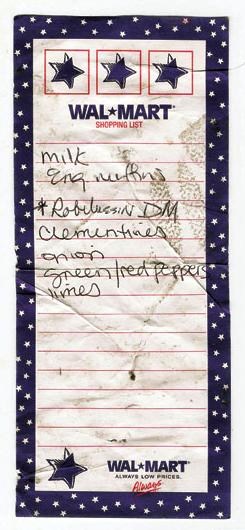 WAL★MART
SHOPPING LIST
milk
Eng muffins
* Robitussin DM
Clementines
onion
green/red peppers
limes
WAL★MART
ALWAYS LOW PRICES.
Always